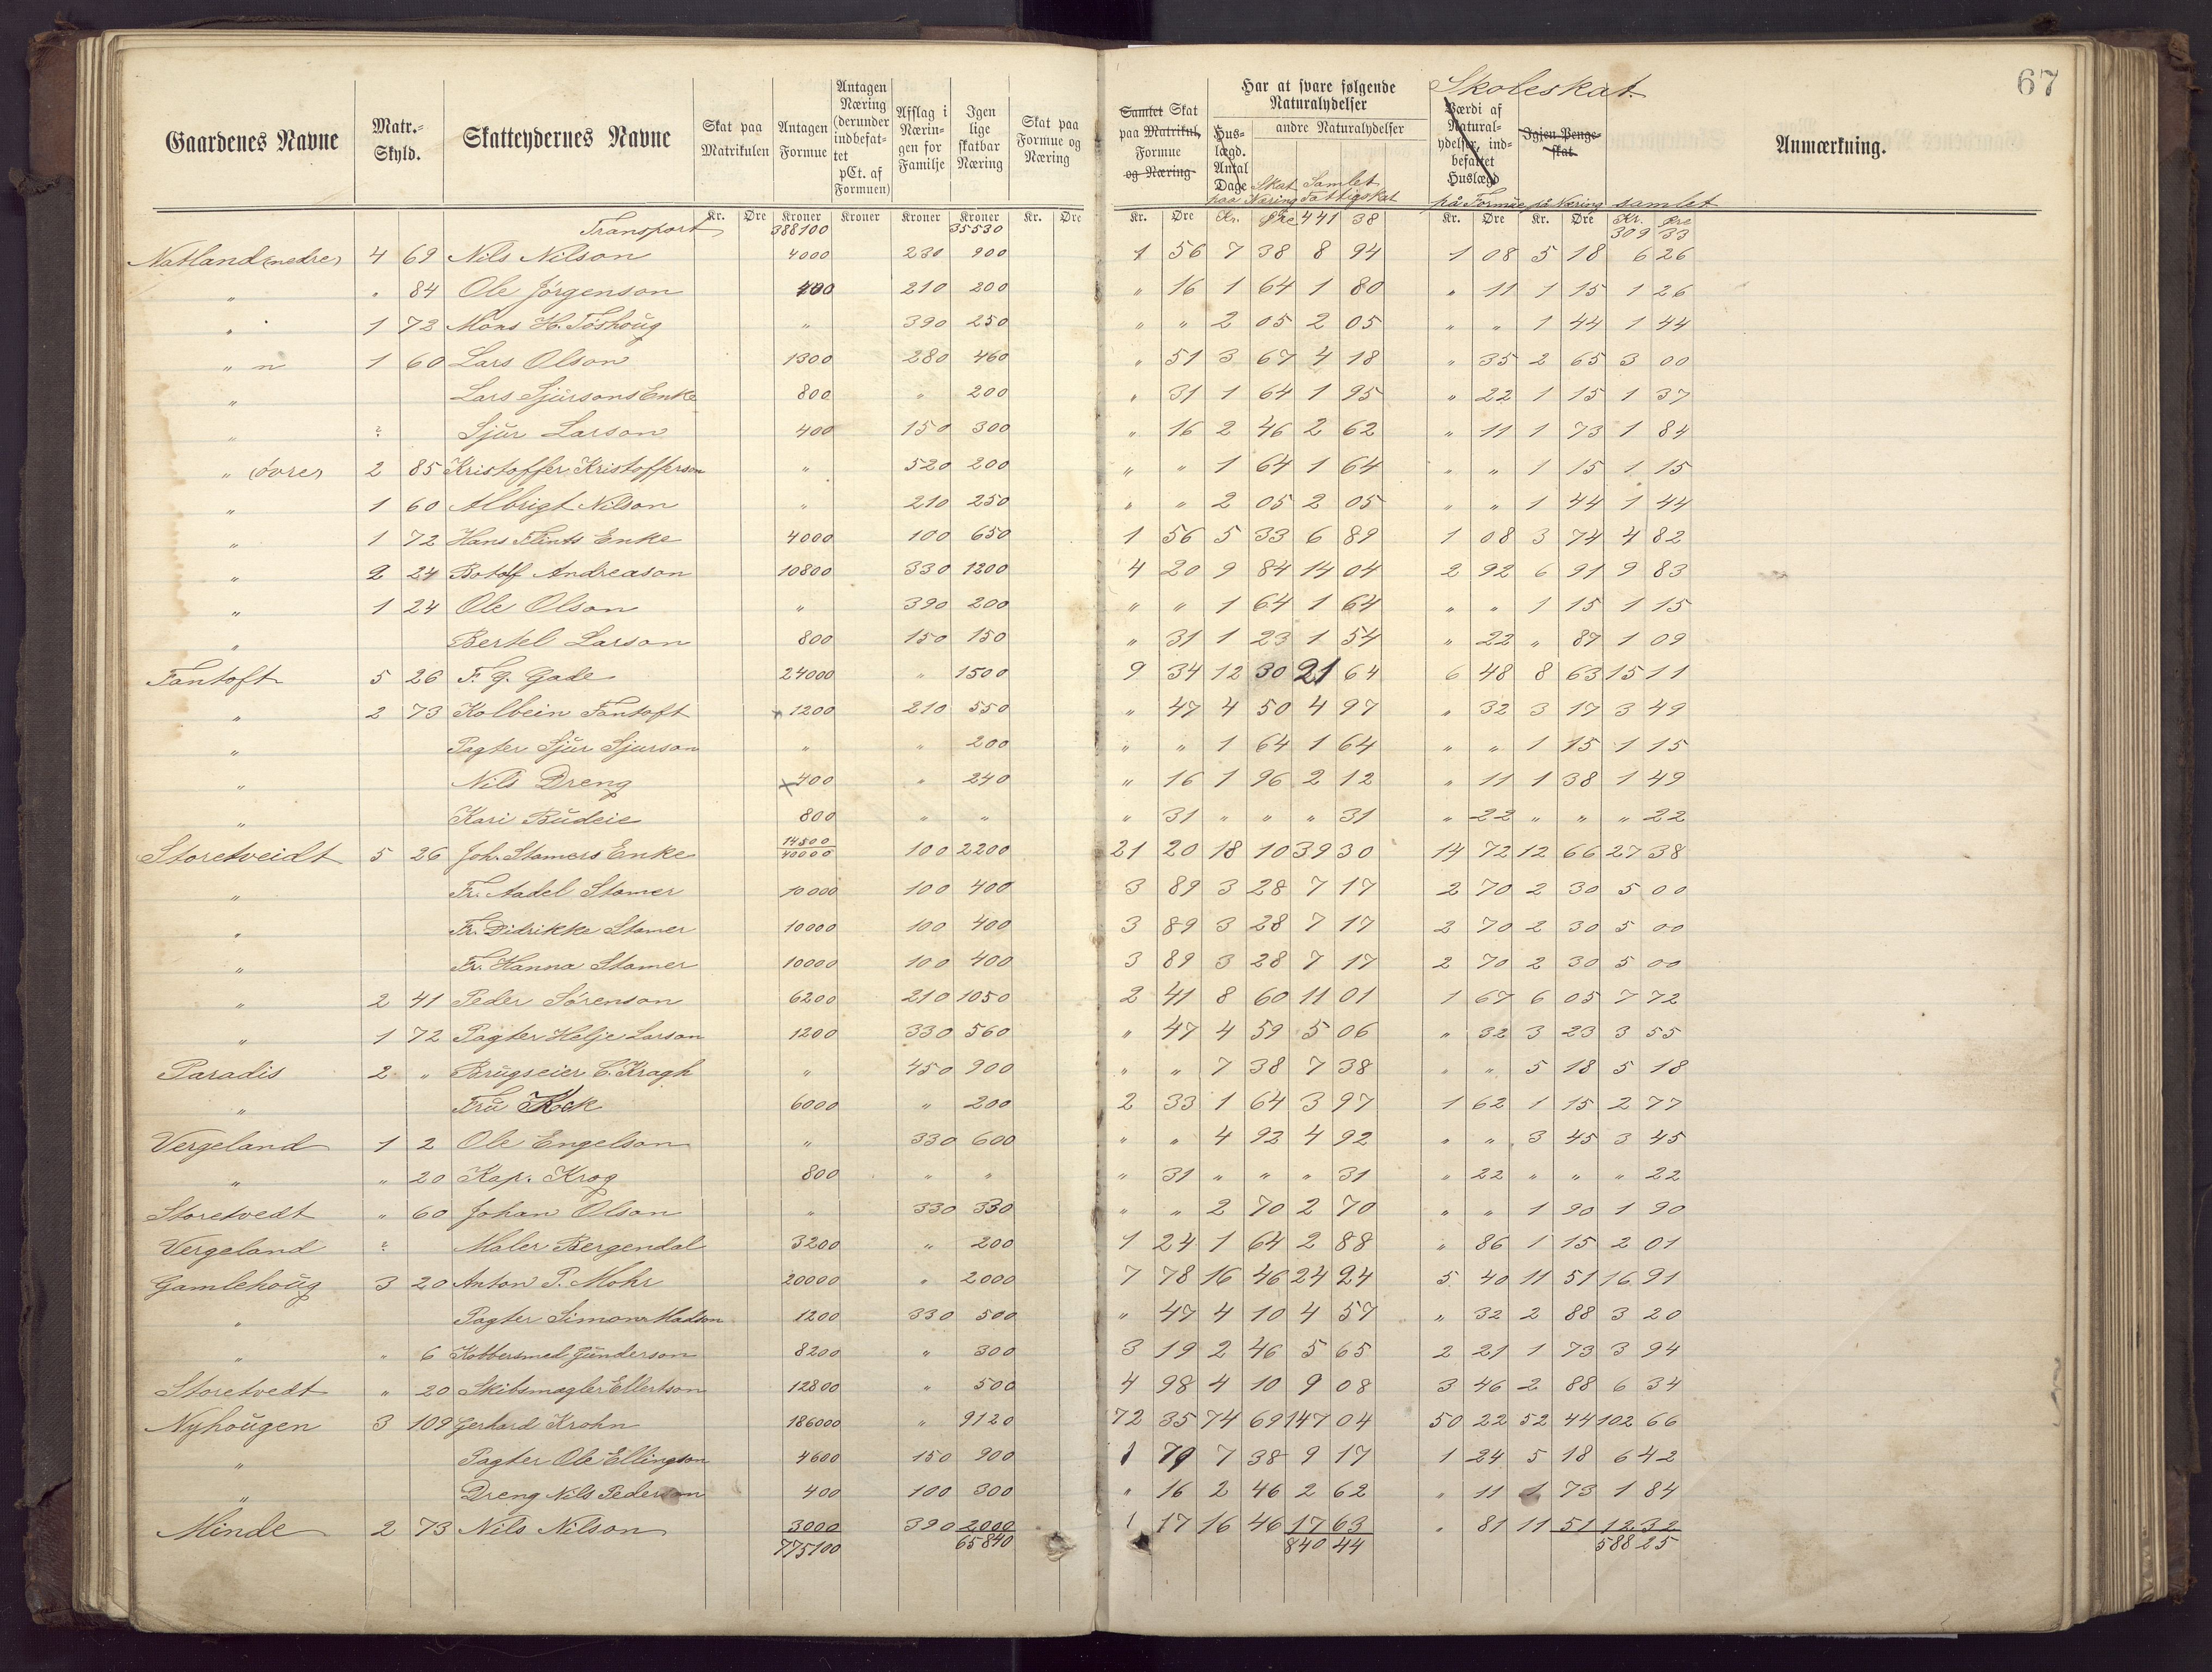 67
Skoleskat.
Gaardenes Navne | Matr.-Skyld. | Skatteydernes Navne | Skat paa Matrikulen | Antagen Formue | Antagen Næring (derunder indbefattet pCt. af Formuen) | Afslag i Næringen for Familje | Igen lige skatbar Næring | Skat paa Formue og Næring | Samlet Skat paa Matrikul, Formue og Næring | Har at svare følgende Naturalydelser | Huslægd. Antal Dage | andre Naturalydelser | Skat paa Næring | Samlet Fattigskat | Værdi af Naturalydelser, indbefattet Huslægd | Igjen Pengeskat | på Formue | på Næring | samlet | Anmærkning.
Kr. Øre | Kroner | Kroner | Kroner | Kroner | Kr. Øre | Kr. Øre | Kr. Øre | Kr. Øre | Kr. Øre | Kr. Øre
Transport | 388100 | 35530 | 441 38 | 309 33
Natland nedre | 4 69 | Nils Nilson | 4000 | 230 | 900 | 1 56 | 7 38 | 8 94 | 1 08 | 5 18 | 6 26
" | " 84 | Ole Jörgenson | 400 | 210 | 200 | " 16 | 1 64 | 1 80 | " 11 | 1 15 | 1 26
" | 1 72 | Mons H. Töshoug | " | 390 | 250 | " " | 2 05 | 2 05 | " " | 1 44 | 1 44
" n | 1 60 | Lars Olson | 1300 | 280 | 460 | " 51 | 3 67 | 4 18 | " 35 | 2 65 | 3 00
" | Lars Sjursons Enke | 800 | " | 200 | " 31 | 1 64 | 1 95 | " 22 | 1 15 | 1 37
" | ? | Sjur Larson | 400 | 150 | 300 | " 16 | 2 46 | 2 62 | " 11 | 1 73 | 1 84
" övre | 2 85 | Kristoffer Kristofferson | " | 520 | 200 | " " | 1 64 | 1 64 | " " | 1 15 | 1 15
" | 1 60 | Albrigt Nilson | " | 210 | 250 | " " | 2 05 | 2 05 | " " | 1 44 | 1 44
" | 1 72 | Hans Flints Enke | 4000 | 100 | 650 | 1 56 | 5 33 | 6 89 | 1 08 | 3 74 | 4 82
" | 2 24 | Botolf Andreason | 10800 | 330 | 1200 | 4 20 | 9 84 | 14 04 | 2 92 | 6 91 | 9 83
" | 1 24 | Ole Olson | " | 390 | 200 | " " | 1 64 | 1 64 | " " | 1 15 | 1 15
" | Bertel Larson | 800 | 150 | 150 | " 31 | 1 23 | 1 54 | " 22 | " 87 | 1 09
Fantoft | 5 26 | F. G. Gade | 24000 | " | 1500 | 9 34 | 12 30 | 21 64 | 6 48 | 8 63 | 15 11
" | 2 73 | Kolbein Fantoft | 1200 | 210 | 550 | " 47 | 4 50 | 4 97 | " 32 | 3 17 | 3 49
" | Pagter Sjur Sjurson | " | " | 200 | " " | 1 64 | 1 64 | " " | 1 15 | 1 15
" | Nils Dreng | 400 | " | 240 | " 16 | 1 96 | 2 12 | " 11 | 1 38 | 1 49
" | Kari Budeie | 800 | " | " | " 31 | " " | " 31 | " 22 | " " | " 22
Storetveidt | 5 26 | Joh. Stamers Enke | 14500 40000 | 100 | 2200 | 21 20 | 18 10 | 39 30 | 14 72 | 12 66 | 27 38
" | Fr. Aadel Stamer | 10000 | 100 | 400 | 3 89 | 3 28 | 7 17 | 2 70 | 2 30 | 5 00
" | Fr. Didrikke Stamer | 10000 | 100 | 400 | 3 89 | 3 28 | 7 17 | 2 70 | 2 30 | 5 00
" | Fr. Hanna Stamer | 10000 | 100 | 400 | 3 89 | 3 28 | 7 17 | 2 70 | 2 30 | 5 00
" | 2 41 | Peder Sörenson | 6200 | 210 | 1050 | 2 41 | 8 60 | 11 01 | 1 67 | 6 05 | 7 72
" | 1 72 | Pagter Helje Larson | 1200 | 330 | 560 | " 47 | 4 59 | 5 06 | " 32 | 3 23 | 3 55
Paradis | 2 " | Brugseier C. Kragh | " | 450 | 900 | " " | 7 38 | 7 38 | " " | 5 18 | 5 18
" | Fru | 6000 | " | 200 | 2 33 | 1 64 | 3 97 | 1 62 | 1 15 | 2 77
Vergeland | 1 2 | Ole Engelson | " | 330 | 600 | " " | 4 92 | 4 92 | " " | 3 45 | 3 45
" | " 20 | Kap. Krog | 800 | " | " | " 31 | " " | " 31 | " 22 | " " | " 22
Storetvedt | " 60 | Johan Olson | " | 330 | 330 | " " | 2 70 | 2 70 | " " | 1 90 | 1 90
Vergeland | ? | Maler Bergendal | 3200 | " | 200 | 1 24 | 1 64 | 2 88 | " 86 | 1 15 | 2 01
Gamlehoug | 3 20 | Anton P. Mohr | 20000 | " | 2000 | 7 78 | 16 46 | 24 24 | 5 40 | 11 51 | 16 91
" | Pagter Simon Madson | 1200 | 330 | 500 | " 47 | 4 10 | 4 57 | " 32 | 2 88 | 3 20
" | " 6 | Kobbersmed Gunderson | 8200 | " | 300 | 3 19 | 2 46 | 5 65 | 2 21 | 1 73 | 3 94
Storetvedt | " 20 | Skibsmagler Ellertson | 12800 | " | 500 | 4 98 | 4 10 | 9 08 | 3 46 | 2 88 | 6 34
Nyhougen | 3 109 | Gerhard Krohn | 186000 | " | 9120 | 72 35 | 74 69 | 147 04 | 50 22 | 52 44 | 102 66
" | Pagter Ole Ellingson | 4600 | 150 | 900 | 1 79 | 7 38 | 9 17 | 1 24 | 5 18 | 6 42
" | Dreng Nils Pederson | 400 | 100 | 300 | " 16 | 2 46 | 2 62 | " 11 | 1 73 | 1 84
Minde | 2 73 | Nils Nilson | 3000 | 390 | 2000 | 1 17 | 16 46 | 17 63 | " 81 | 11 51 | 12 32
775100 | 65840 | 840 44 | 588 25